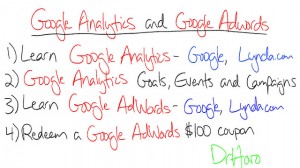 Google Analytics and Google Adwords
1) Learn Google Analytics - Google, Lynda.com
2) Google Analytics Goals, Events and Campaigns
3) Learn Google AdWords - Google, Lynda.com
4) Redeem a Google AdWords $100 coupon